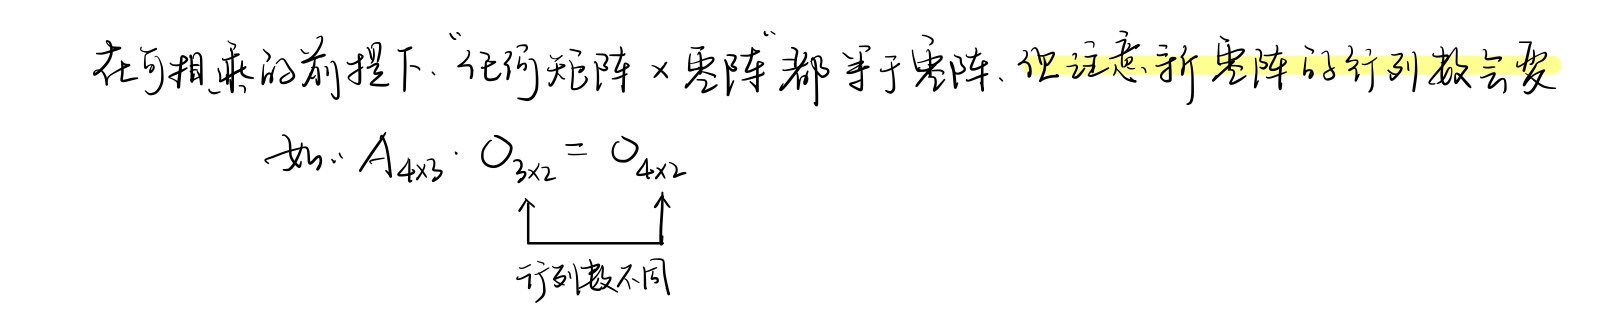 在可相乘的前提下."任何矩阵 × 零阵"都等于零阵.但注意新零阵的行列数会变
如: A₄ₓ₃ · O₃ₓ₂ = O₄ₓ₂
行列数不同